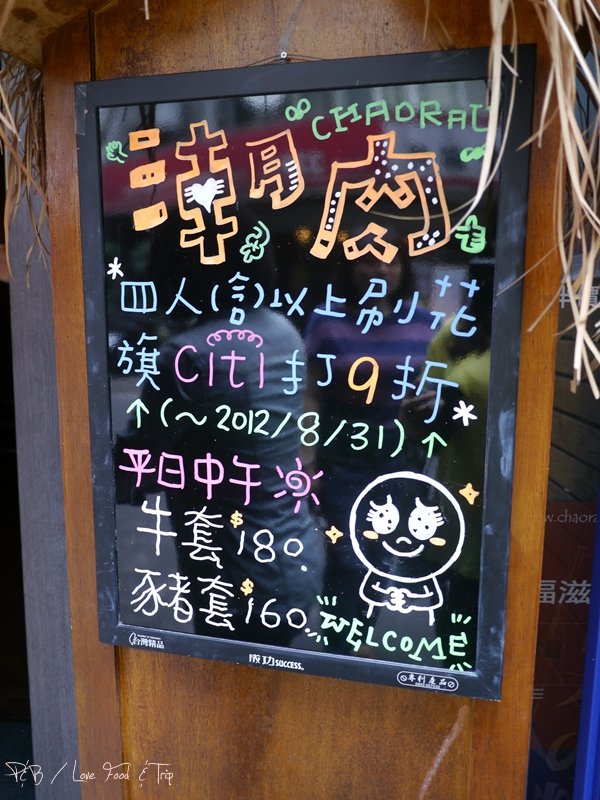 CHAORAU
潮肉
四人(含)以上刷花
旗Citi打9折
↑(～2012/8/31)↑
平日中午
牛套$180.
豬套$160
WELCOME
台灣精品
成功SUCCESS®
專利產品
w.chaora
福滋
P&B / Love Food & Trip